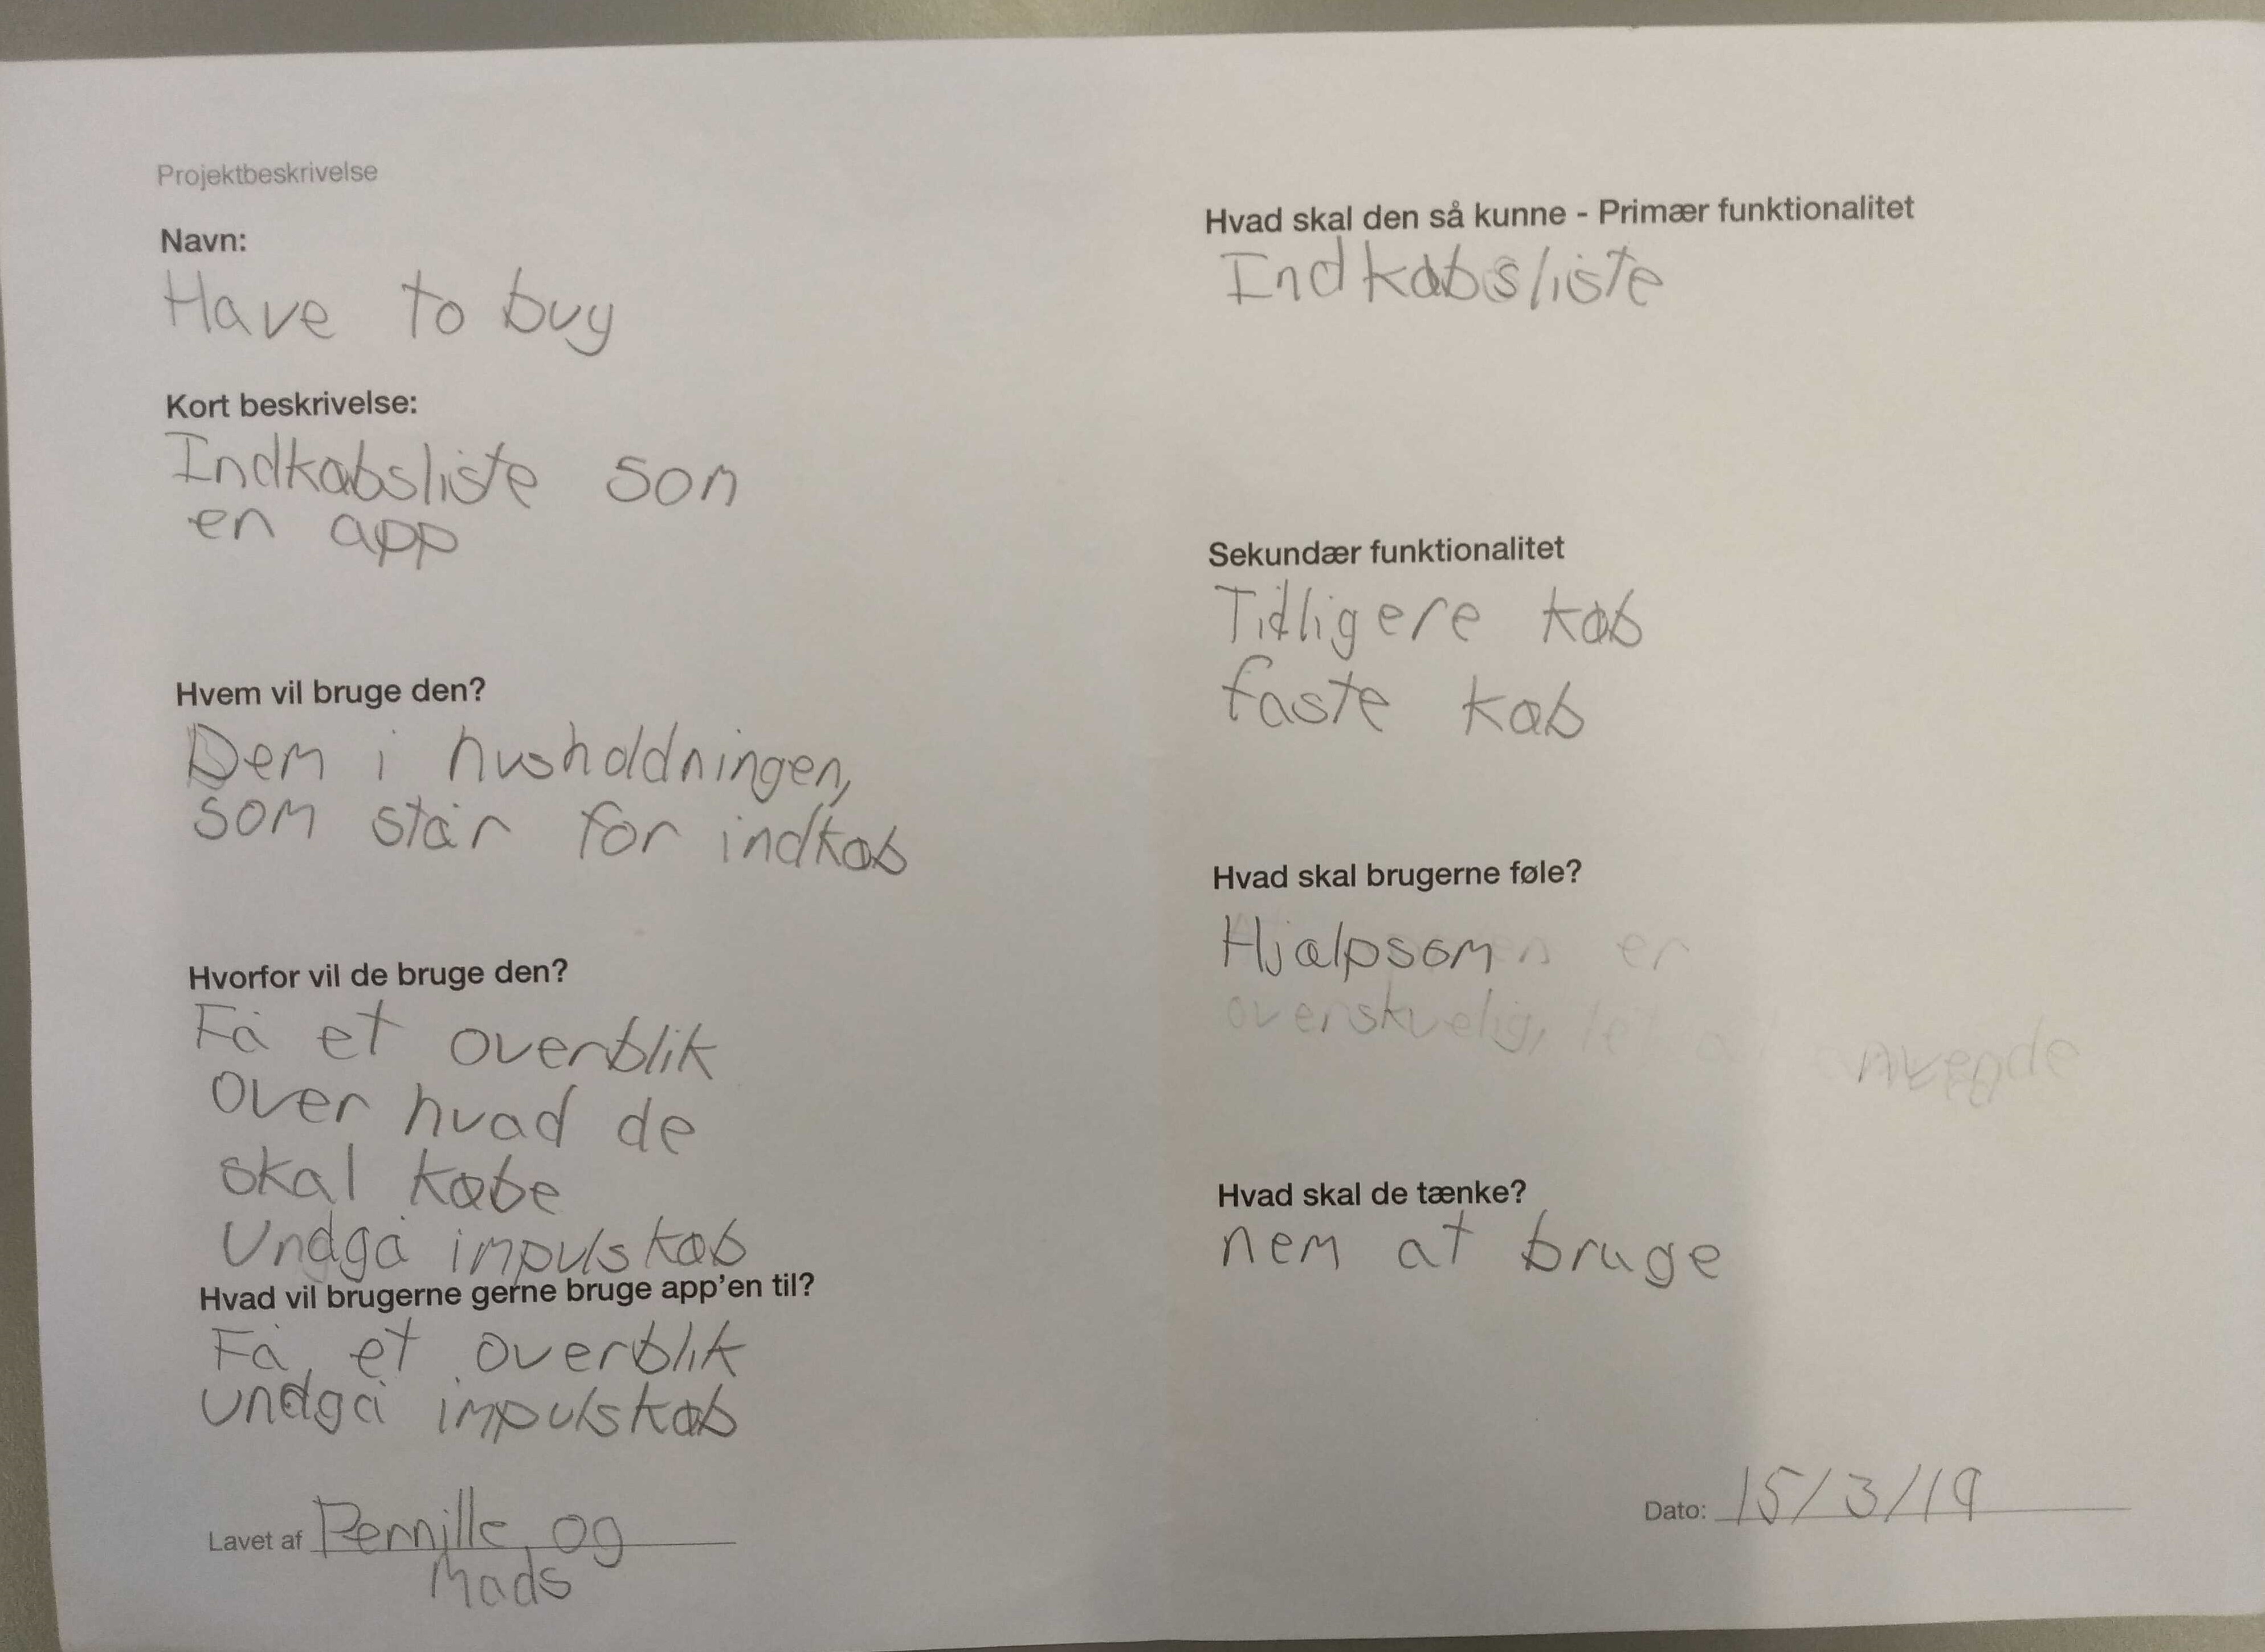 Projektbeskrivelse
Navn:
Have to buy
Kort beskrivelse:
Indkøbsliste som
en app
Hvem vil bruge den?
Dem i husholdningen,
som står for indkøb
Hvorfor vil de bruge den?
Få et overblik
over hvad de
skal købe
Undgå impulskøb
Hvad vil brugerne gerne bruge app'en til?
Få et overblik
undgå impulskøb
Lavet af Pernille og
Mads
Hvad skal den så kunne - Primær funktionalitet
Indkøbsliste
Sekundær funktionalitet
Tidligere køb
faste køb
Hvad skal brugerne føle?
Hjælpsom er
overskuelig, let
Hvad skal de tænke?
nem at bruge
Dato: 15/3/19